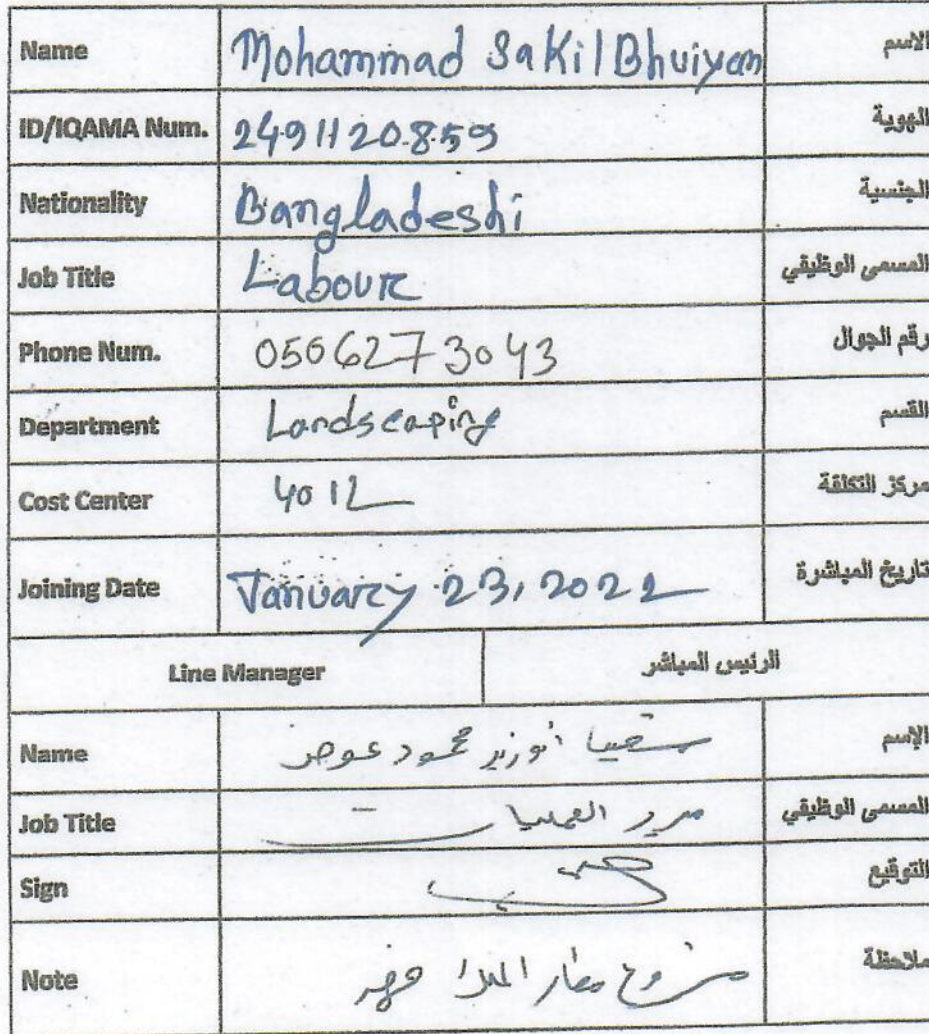 Name Mohammad Sakil Bhuiyan الاسم
ID/IQAMA Num. 2491120859 الهوية
Nationality Bangladeshi الجنسية
Job Title Labour المسمى الوظيفي
Phone Num. 0506273043 رقم الجوال
Department Landscaping القسم
Cost Center 4012 مركز التكلفة
Joining Date January 23, 2022 تاريخ المباشرة
Line Manager الرئيس المباشر
Name أبوزيد محمود عوض الإسم
Job Title مدير العمليات المسمى الوظيفي
Sign التوقيع
Note مشروع مطار الملك فهد ملاحظة